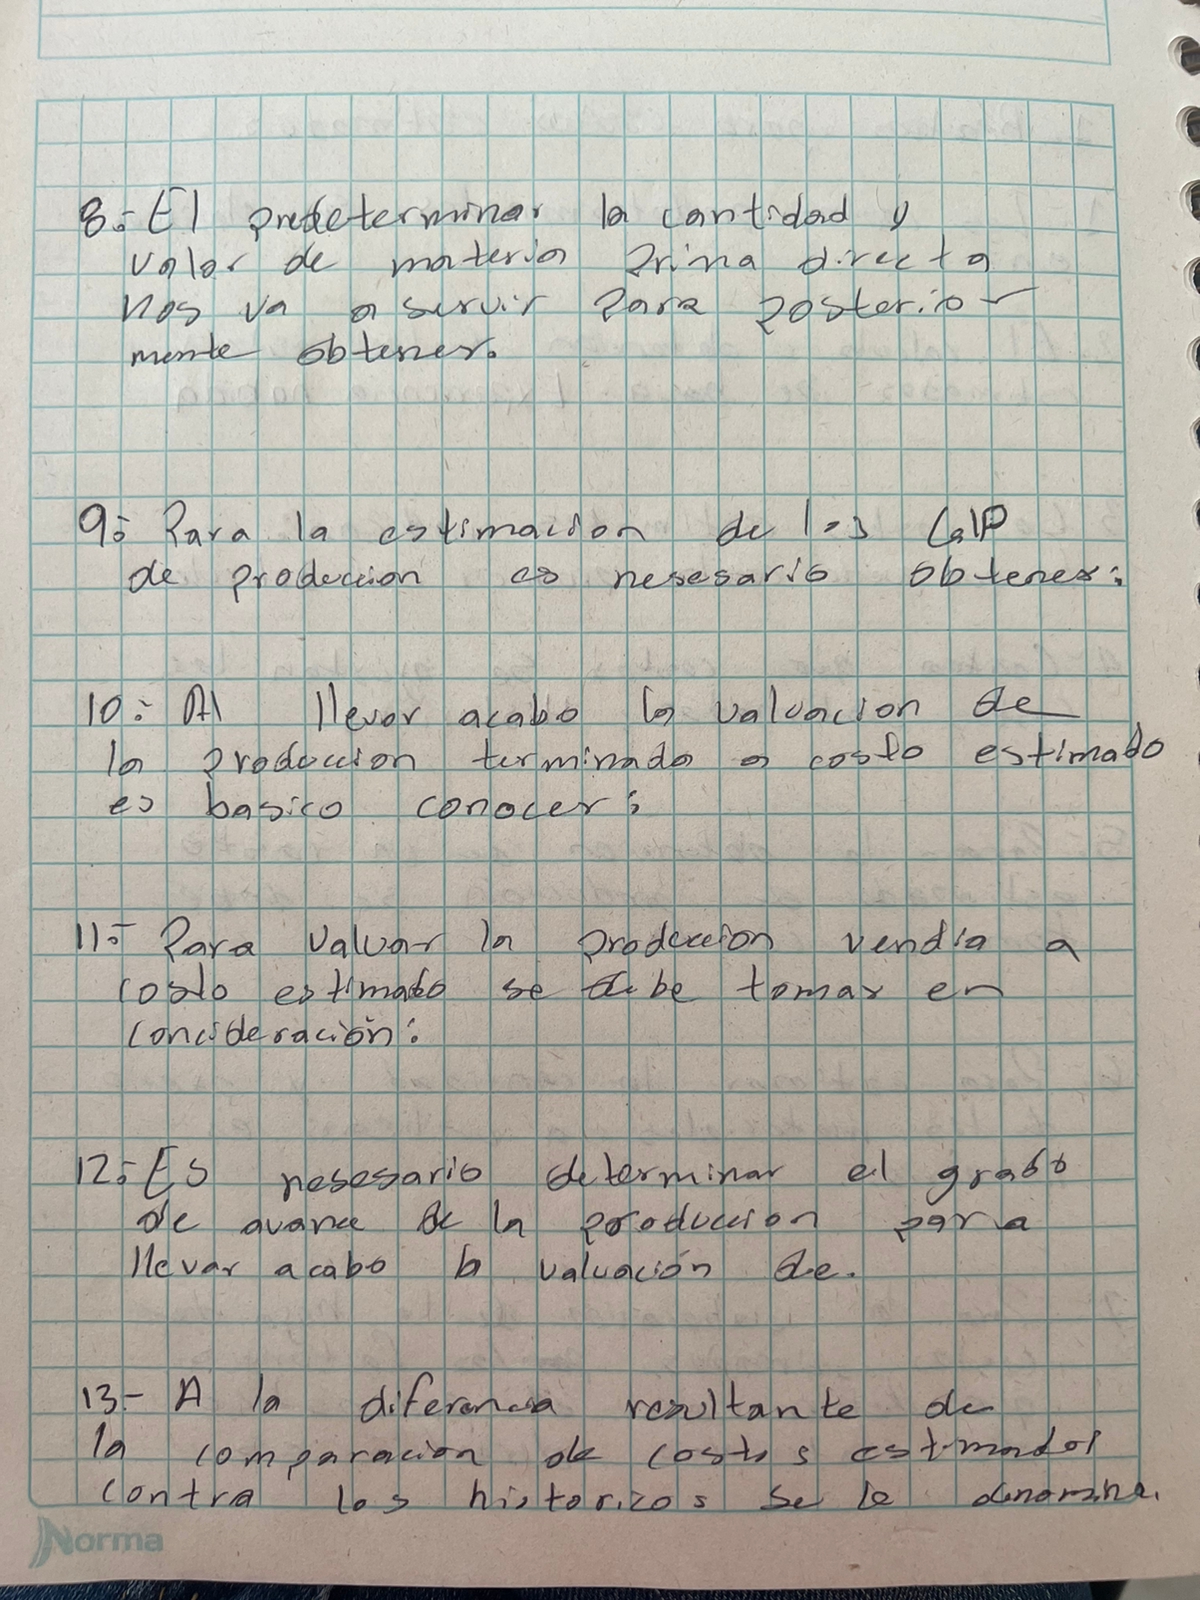 8.- El predeterminar la cantidad y
valor de materia prima directa
nos va a servir para posterior-
mente obtener.
9.- Para la estimacion de los CalP
de produccion es nesesario obtener:
10.- Al llevar acabo la valuacion de
la produccion terminada a costo estimado
es basico conocer:
11.- Para valuar la produccion vendia a
costo estimado se debe tomar en
concideración:
12.- Es nesesario determinar el grado
de avance de la produccion para
llevar acabo la valuación de.
13.- A la diferencia resultante de
la comparacion de costos estimados
contra los historicos se le denomina.
Norma